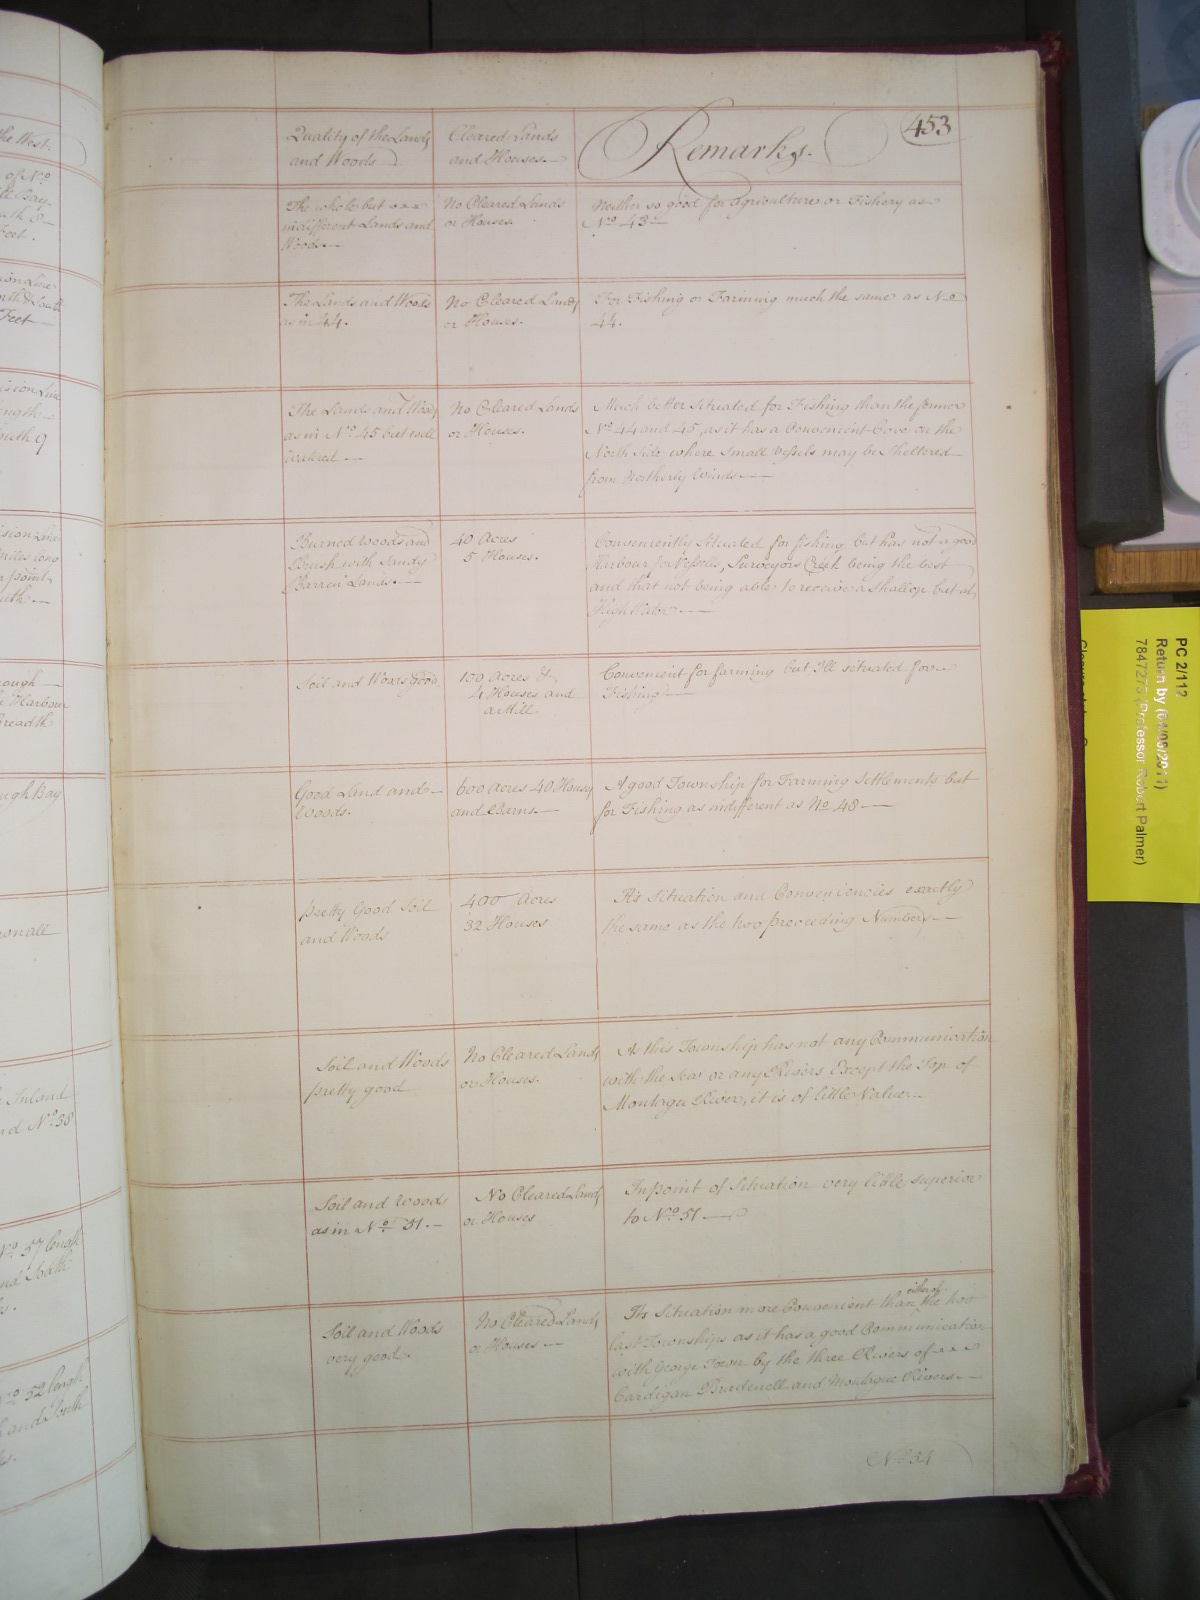 the West.
of No
Feet.
Feet
North 9
Harbour
breadth
ugh Bay
Inland
nd No. 38
No. 57 length
and South
No. 52 length
and South
453
Quality of the Lands
and Woods
Cleared Lands
and Houses.
Remarks.
The whole but
indifferent Lands and
Woods.
No Cleared Lands
or Houses.
Neither so good for Agriculture or Fishery as
No. 43
The Lands and Woods
as in 44.
No Cleared Lands
or Houses.
For Fishing or Farming much the same as No.
44.
The Lands and Woods
as in No. 45 but well
watered
No Cleared Lands
or Houses.
Much better situated for Fishing than the former
No. 44 and 45, as it has a Convenient Cove on the
North Side where small Vessels may be Sheltered
from Northerly Winds
Burned Woods and
Brush with Sandy
Barren Lands.
40 Acres
5 Houses.
Conveniently Situated for fishing but has not a good
Harbour for Vessels, Surveyors Creek being the best
and that not being able to receive a Shallop but at
High Water
Soil and Woods good.
100 Acres &
4 Houses and
a Mill
Convenient for farming but Ill situated for
Fishing
Good Land and
Woods.
600 Acres 40 Houses
and Barns.
A good Township for Farming Settlements but
for Fishing as indifferent as No. 48
pretty Good Soil
and Woods
400 Acres
32 Houses
Its Situation and Conveniencies exactly
the same as the two preceeding Numbers
Soil and Woods
pretty good
No Cleared Lands
or Houses.
As this Township has not any Communication
with the Sea or any Rivers Except the Top of
Montagu River, it is of little Value.
Soil and Woods
as in No. 51.
No Cleared Lands
or Houses
In point of Situation very little superior
to No. 51
Soil and Woods
very good
No Cleared Lands
or Houses
either of
Its Situation more Convenient than the two
last Townships as it has a good Communication
with George Town by the three Rivers of
Cardigan Brudenell and Montague Rivers
No. 54
PC 2/112
Return by (04/08/2011)
7847275 (Professor Robert Palmer)